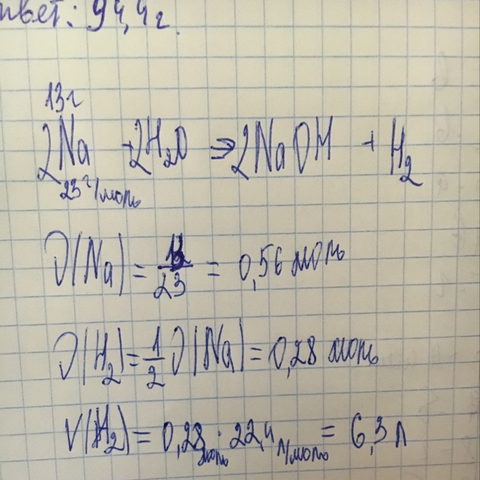 твет: 94,4г.
13г
2Na + 2H₂O ⇒ 2NaOH + H₂
23 г/моль
ν(Na) = 13/23 = 0,56 моль
ν(H₂) = 1/2 ν(Na) = 0,28 моль
V(H₂) = 0,28 моль · 22,4 л/моль = 6,3 л